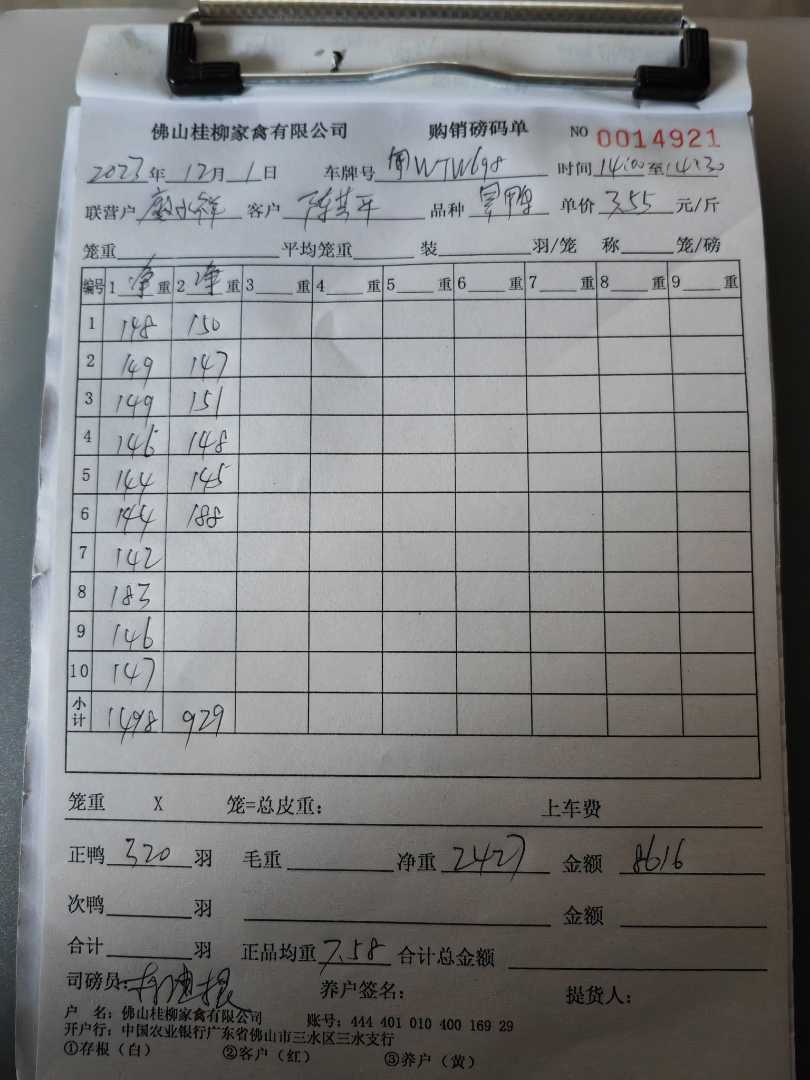 佛山桂柳家禽有限公司 购销磅码单 NO 0014921
2023年12月1日 车牌号 WTW698 时间14:00至14:30
联营户 水祥 客户 陈 平 品种 鸭 单价3.55元/斤
笼重 平均笼重 装 羽/笼 称 笼/磅
编号 1净重 2净重 3 重 4 重 5 重 6 重 7 重 8 重 9 重
1 148 150
2 149 147
3 149 151
4 146 148
5 144 145
6 144 188
7 142
8 183
9 146
10 147
小计 1498 929
笼重 X 笼=总皮重: 上车费
正鸭320羽 毛重 净重2427 金额8616
次鸭 羽 金额
合计 羽 正品均重7.58 合计总金额
司磅员: 养户签名: 提货人:
户 名: 佛山桂柳家禽有限公司 账号: 444 401 010 400 169 29
开户行: 中国农业银行广东省佛山市三水区三水支行
①存根(白) ②客户(红) ③养户(黄)